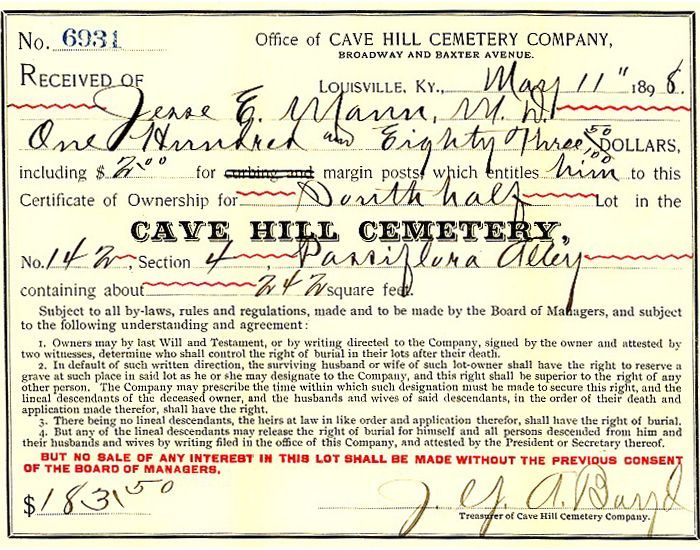 No. 6931 Office of CAVE HILL CEMETERY COMPANY,
BROADWAY AND BAXTER AVENUE.
RECEIVED OF LOUISVILLE, KY., May 11" 1898.
Jesse E. Mann, M.D.
One Hundred and Eighty Three 50/100 DOLLARS,
including $ 2.00 for curbing and margin posts, which entitles him to this
Certificate of Ownership for South half Lot in the
CAVE HILL CEMETERY,
No. 142, Section 4, Passiflora Alley
containing about 242 square feet.
Subject to all by-laws, rules and regulations, made and to be made by the Board of Managers, and subject
to the following understanding and agreement:
1. Owners may by last Will and Testament, or by writing directed to the Company, signed by the owner and attested by
two witnesses, determine who shall control the right of burial in their lots after their death.
2. In default of such written direction, the surviving husband or wife of such lot-owner shall have the right to reserve a
grave at such place in said lot as he or she may designate to the Company, and this right shall be superior to the right of any
other person. The Company may prescribe the time within which such designation must be made to secure this right, and the
lineal descendants of the deceased owner, and the husbands and wives of said descendants, in the order of their death and
application made therefor, shall have the right.
3. There being no lineal descendants, the heirs at law in like order and application therefor, shall have the right of burial.
4. But any of the lineal descendants may release the right of burial for himself and all persons descended from him and
their husbands and wives by writing filed in the office of this Company, and attested by the President or Secretary thereof.
BUT NO SALE OF ANY INTEREST IN THIS LOT SHALL BE MADE WITHOUT THE PREVIOUS CONSENT
OF THE BOARD OF MANAGERS,
$ 183.50 J. G. A. Boyd
Treasurer of Cave Hill Cemetery Company.